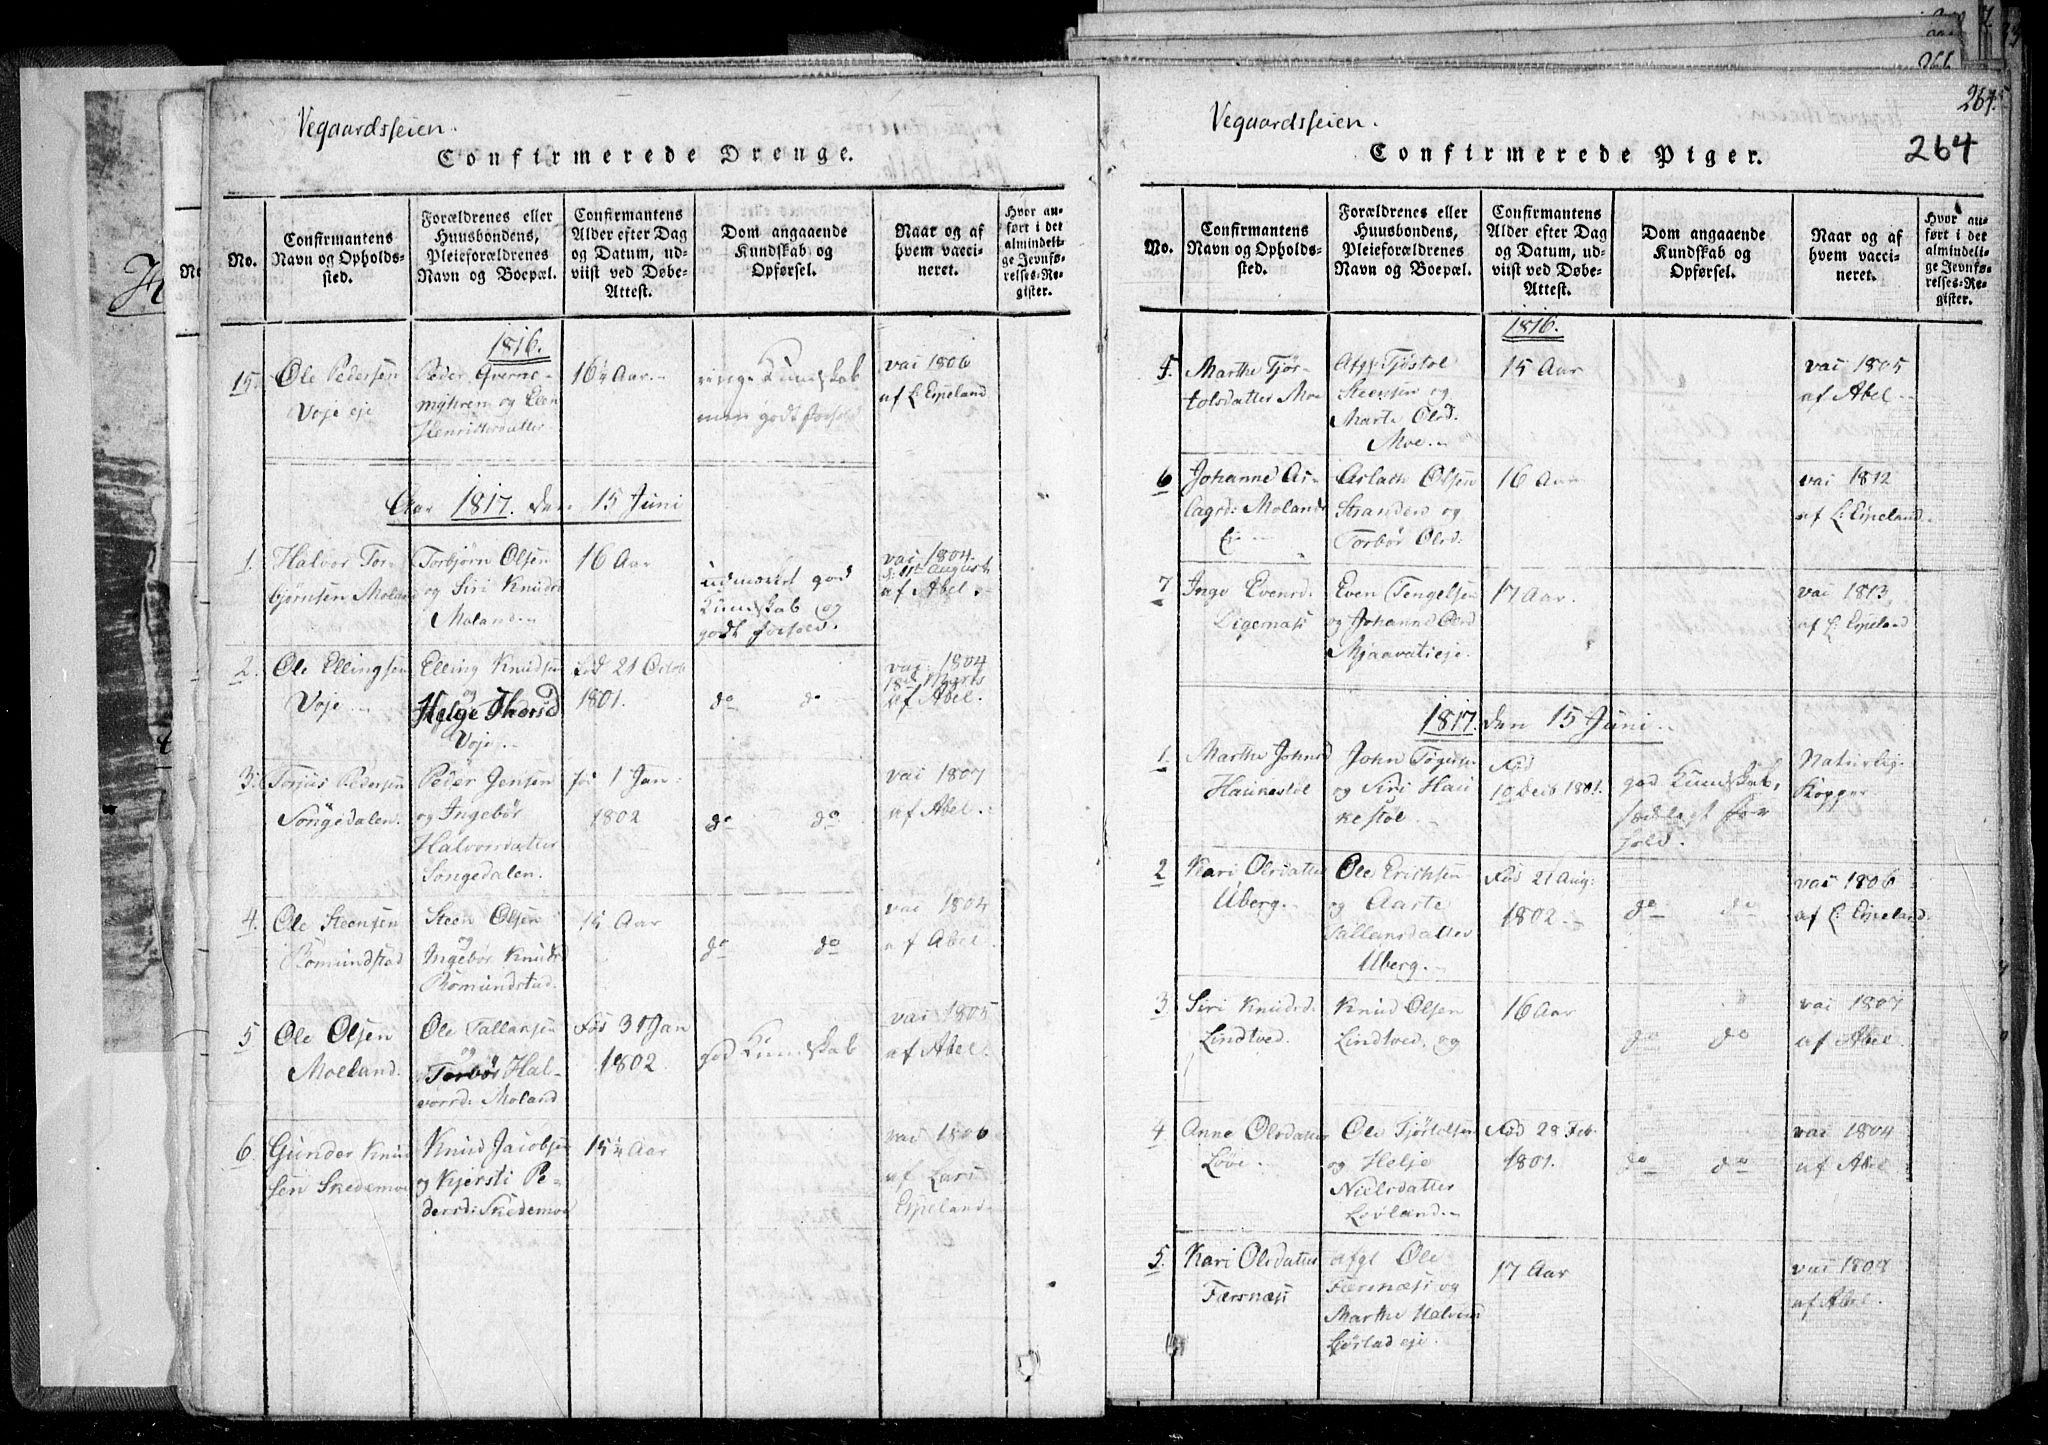 Vegaardsseien.
Confirmerede Drenge.
No.
Confirmantens
Navn og Opholds-
sted.
Forældrenes eller
Huusbondens,
Pleieforældrenes
Navn og Boepæl.
Confirmantens
Alder efter Dag
og Datum, ud-
viist ved Døbe-
Attest.
Dom angaaende
Kundskab og
Opførsel.
Naar og af
hvem vacci-
neret.
Hvor an-
ført i det
almindeli-
ge Jevnfø-
relses-Re-
gister.
1816.
15.
Ole Pedersen
Voje eje
Peder Qverne-
myhren og Elen
Henrittesdatter
16½ Aar.
ringe Kundskab
men godt forhold
vai 1806
af L: Espeland
Aar 1817. den 15 Juni
1.
Halvor Tor-
bjørnsen Moland
Torbjørn Olsen
og Siri Knudsd
Moland.
16 Aar
udmærket god
Kundskab og
godt forhold.
vai 1804.
d: 11te August
af Abel.
2.
Ole Ellingsen
Voje
Elling Knudsen
og
Helge Thorsd
Voje.
fød 21 Octob
1801.
do do
vai 1804
18de Marts
af Abel.
3.
Torjus Pedersen
Söngedalen.
Peder Jensen
og Ingebör
Halvorsdatter
Songedalen.
fö: 1 Jan:
1802
do do
vai 1807
af Abel.
4.
Ole Steensen
Romundstad
Steen Olsen
og
Ingebör Knudsd
Romundstad.
15 Aar
do do
vai 1804
af Abel.
5
Ole Olsen
Moeland.
Ole Tallaksen
og
Torbör Hal-
vorsd: Moland
Fød 31 Jan
1802
god Kundskab
vai 1805
af Abel.
6.
Gunder Knud
sen Skedemoe
Knud Jacobsen
og Kjersti Pe-
dersd: Skedemoe
15½ Aar
vai 1806
af Lars
Espeland.
264.
264
Vegaardsseien.
Confirmerede Piger.
No.
Confirmantens
Navn og Opholds-
sted.
Forældrenes eller
Huusbondens,
Pleieforældrenes
Navn og Boepæl.
Confirmantens
Alder efter Dag
og Datum, ud-
viist ved Døbe-
Attest.
Dom angaaende
Kundskab og
Opførsel.
Naar og af
hvem vacci-
neret.
Hvor an-
ført i det
almindeli-
ge Jevnfø-
relses-Re-
gister.
1816.
5.
Marthe Tjös-
tolsdatter Moe
Afg: Tjöstol
Steensen og
Marte Olsd:
Moe.
15 Aar
vai 1805
af Abel.
6
Johanne As-
lagsd: Moland
E:
Aslach Olsen
Stranden og
Torbör Olsd:
16 Aar
vai 1812
af L: Espeland.
7
Inge Evensd.
Digernæs
Even Tengelsen
og Johanne Olsd
Mjaavatseje.
17 Aar.
vai 1813,
af L: Espeland
1817. den 15 Juni.
1.
Marthe Johnsd
Haukestöl
John Tögersen
og Siri Hau
kestöl.
Fød
10 Decb 1801.
god Kundskab,
sædeligt for
hold.
Naturlig.
Kopper
2
Kari Olsdatter
Uberg.
Ole Erichsen
og Aaste
Tallaksdatter
Uberg.
Fød 21 Aug:
1802.
do do
vai 1806
af L: Espeland.
3
Siri Knudsd.
Lindtved.
Knud Olsen
Lindtved, og
16 Aar
do do
vai 1807
af Abel.
4
Anne Olsdatter
Løve.
Ole Tjöstelsen
og Helje
Nielsdatter
Lovland.
Fød 28 Feb
1801.
do do
vai 1804
af Abel
5.
Kari Olsdatter
Færsnæs
afg: Ole
Færsnæs og
Marthe Halvorsd
eje.
17 Aar
vai 1808
af Abel.